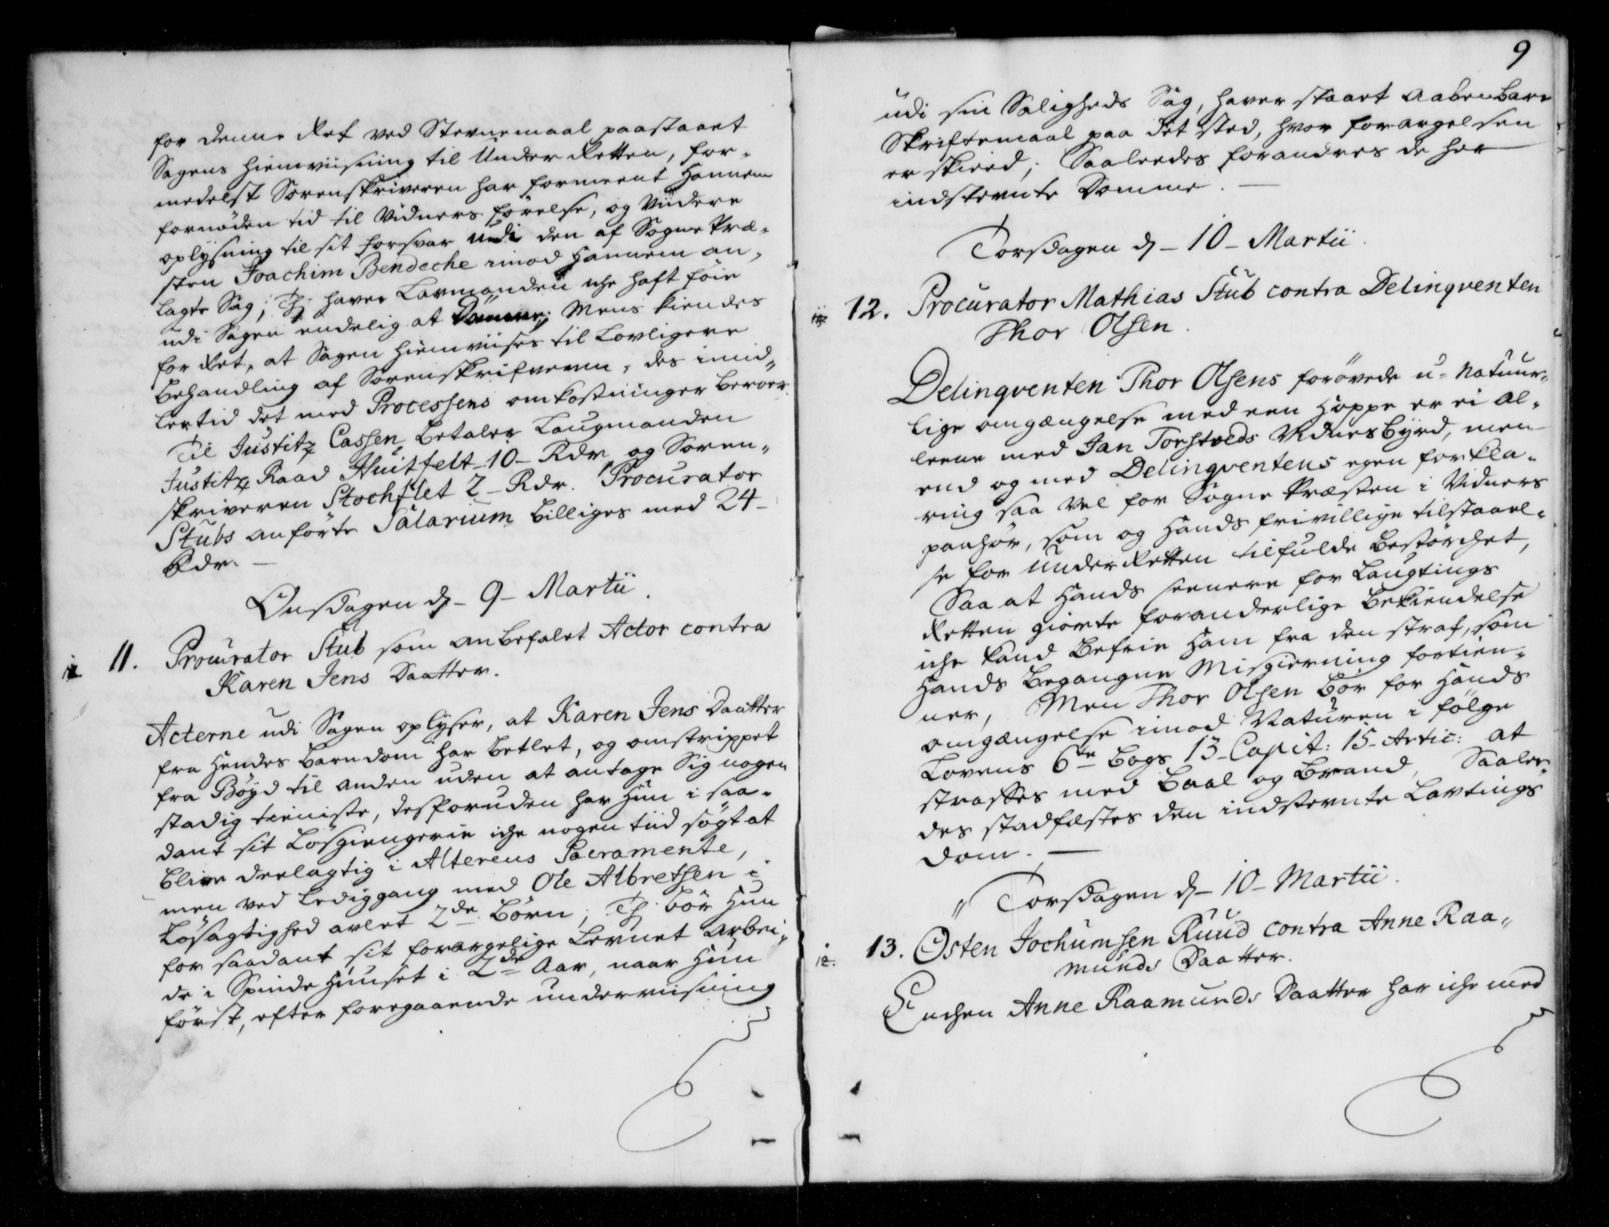 for denne Ret ved Stevnemaal paastaaet
Sagens hiemviisning til Under Retten, for-
medelst Sorenskriveren har formeent Hannem
fornöden tid til Vidners förelse, og Viidere
oplysning til sit forsvar udi den af Sogne Præ-
sten Joachim Bendeche imod Hannem an-
lagte Sag; Thj haver Lavmanden iche haft föie
udi Sagen endelig at Dömme; Mens kiendes
for Ret, at Sagen hiemviises til Lovligere
Behandling af Sorenskrifveren, des imid-
lertid det med Processens omkostninger beroer.
Til Justitz Cassen betaler Laugmanden
Justitz Raad Huitfelt 10 Rdr og Soren-
skriveren Stochflet 2 Rdr. Procurator
Stubs anförte Salarium billiges med 24
Rdr.
Onsdagen d 9 Martii.
11. Procurator Stub som anbefalet Actor contra
Karen Jens Daatter.
Acterne udi Sagen oplyser, at Karen Jens Daatter
fra hendes barndom har betlet, og omstrippet
fra Böyd til anden uden at antage Sig nogen
stadig tieniste, desforuden har hun i saa-
dant sit Lösgiengerie iche nogen tiid sögt at
blive deelagtig i Alterens Sacramente,
men ved Lediggang med Ole Albretsen i
Lösagtighed avlet 2de Börn; Thj bör hun
for saadant sit forargelige Levnet arbei-
de i Spinde Huuset i 2de Aar, naar hun
först, efter foregaaende underviisning
9
udi sin Saligheds Sag, haver staaet aabenbare
Skriftemaal paa det sted, hvor forargelsen
er skeed; Saaledes forandres de her
indstevnte Domme.
Torsdagen d 10 Martii.
12. Procurator Mathias Stub contra Delinqventen
Thor Olsen.
Delinqventen Thor Olsens forövede u-Natuur-
lige omgængelse med een hoppe er ei al-
leene med Jan Torstveds Vidnesbyrd, men
end og med Delinqventens egen forkla-
ring saa vel for Sogne Præsten i Vidners
paahör, som og hands frivillige tilstaael-
se for Under Retten tilfulde bestörchet,
Saa at hands seenere for Laugtings
Retten giorte foranderlige bekiendelse
iche kand befrie ham fra den straf, som
hands begangne Misgierning fortien-
ner, Men Thor Olsen bör for hands
omgængelse imod Naturen i fölge
Lovens 6te Bogs 13 Capit: 15 Artic: at
straffes med Baal og Brand, Saale-
des stadfæstes den indstevnte Lavtings
Dom.
Torsdagen d 10 Martii.
13. Osten Jochumsen Ruud contra Anne Raa-
munds Daatter.
Enchen Anne Raamunds Daatter har iche med